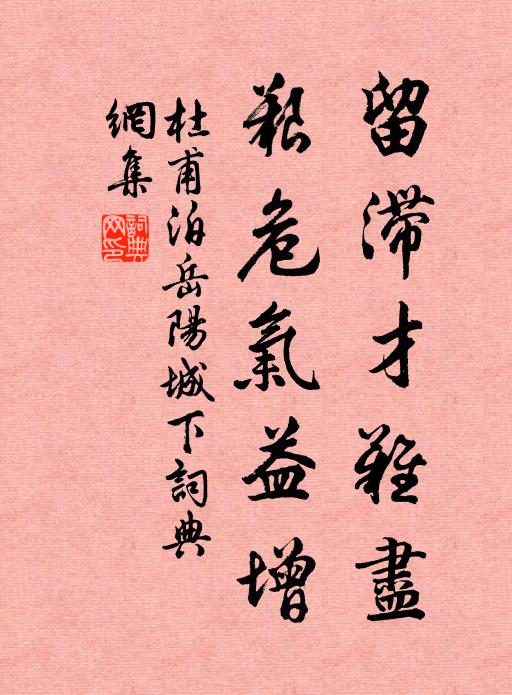 留滯才難盡
艱危氣益增
杜甫泊岳陽城下詞典
網集
詞典網印